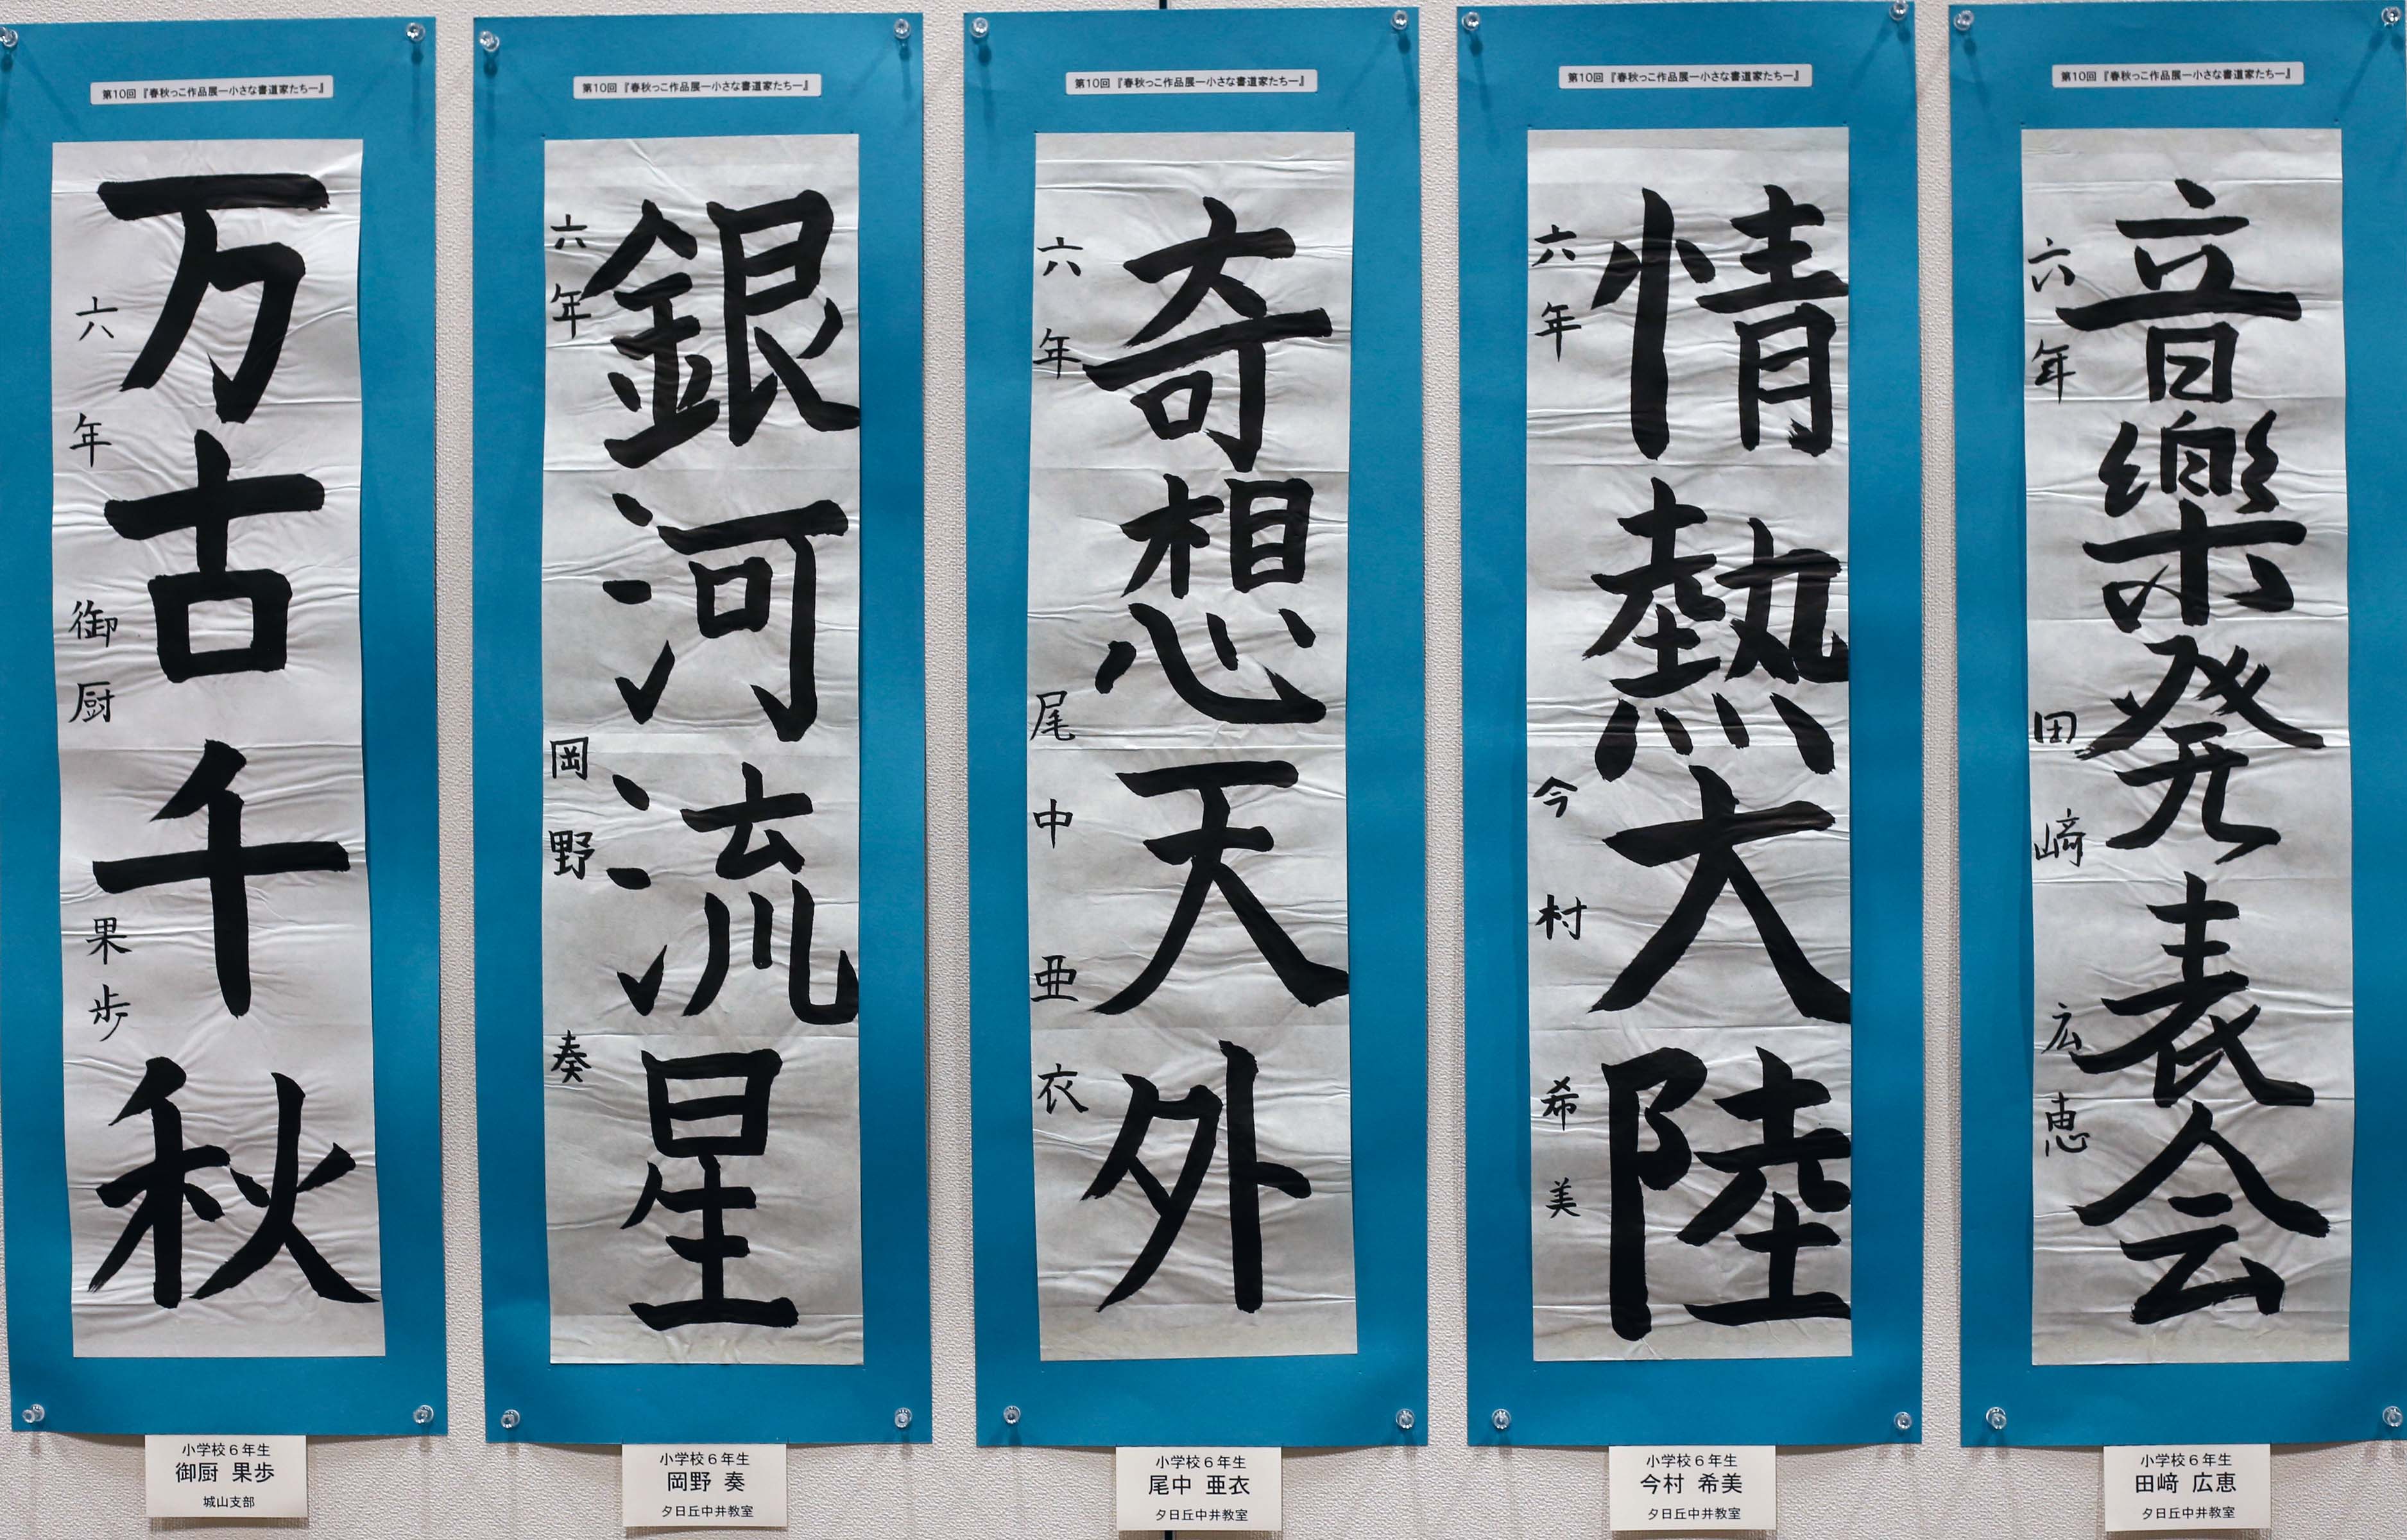 第10回『春秋っこ作品展ー小さな書道家たちー』
万古千秋
六年 御厨 果歩
小学校6年生
御厨 果歩
城山支部
第10回『春秋っこ作品展ー小さな書道家たちー』
銀河流星
六年 岡野 奏
小学校6年生
岡野 奏
夕日丘中井教室
第10回『春秋っこ作品展ー小さな書道家たちー』
奇想天外
六年 尾中 亜衣
小学校6年生
尾中 亜衣
夕日丘中井教室
第10回『春秋っこ作品展ー小さな書道家たちー』
情熱大陸
六年 今村 希美
小学校6年生
今村 希美
夕日丘中井教室
第10回『春秋っこ作品展ー小さな書道家たちー』
音樂発表会
六年 田﨑 広恵
小学校6年生
田﨑 広恵
夕日丘中井教室